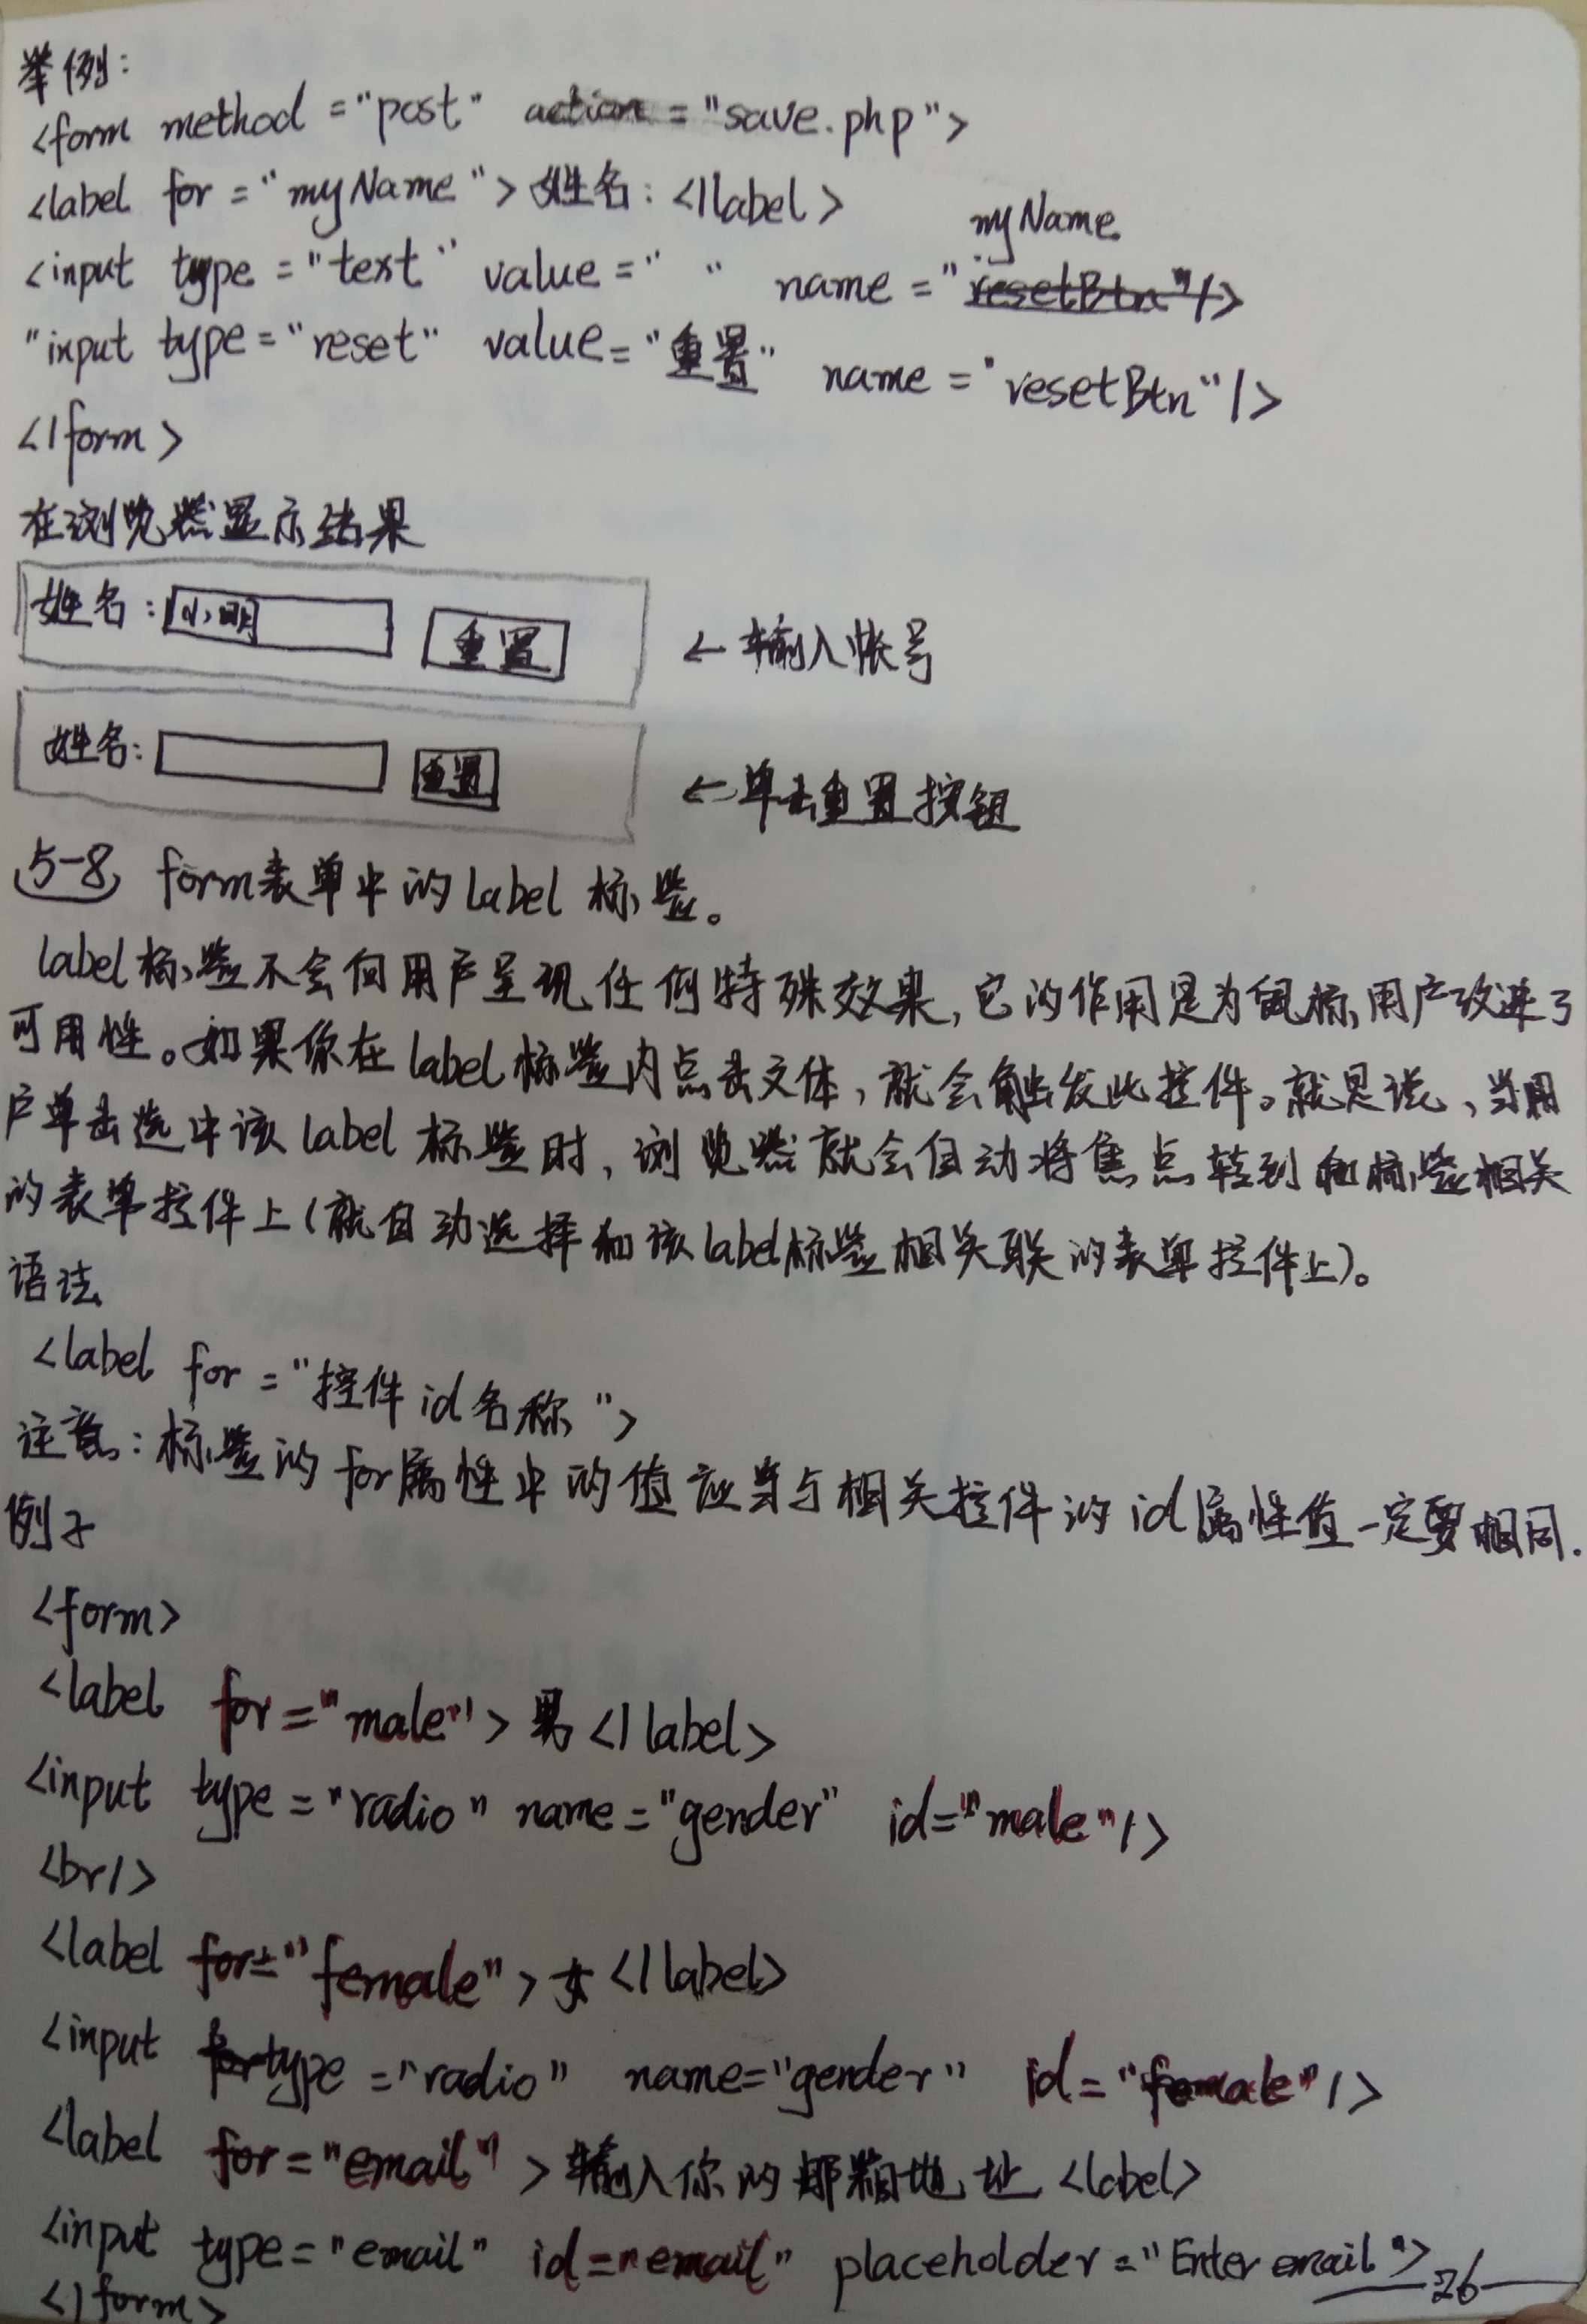 举例：
<form method="post" action="save.php">
<label for="myName">姓名：</label>
myName
<input type="text" value=" " name="resetBtn"/>
"input type="reset" value="重置" name="resetBtn"/>
</form>
在浏览器显示结果
姓名：小明 重置 ←输入帐号
姓名： 重置 ←单击重置按钮
5-8 form表单中的label标签。
label标签不会向用户呈现任何特殊效果，它的作用是为鼠标用户改进了
可用性。如果你在label标签内点击文体，就会触发此控件。就是说、当用
户单击选中该label标签时，浏览器就会自动将焦点转到和标签相关
的表单控件上(就自动选择和该label标签相关联的表单控件上)。
语法
<label for="控件id名称">
注意：标签的for属性中的值应当与相关控件的id属性值一定要相同.
例子
<form>
<label for="male">男</label>
<input type="radio" name="gender" id="male"/>
<br/>
<label for="female">女</label>
<input type="radio" name="gender" id="female"/>
<label for="email">输入你的邮箱地址<label>
<input type="email" id="email" placeholder="Enter email">
</form>
26